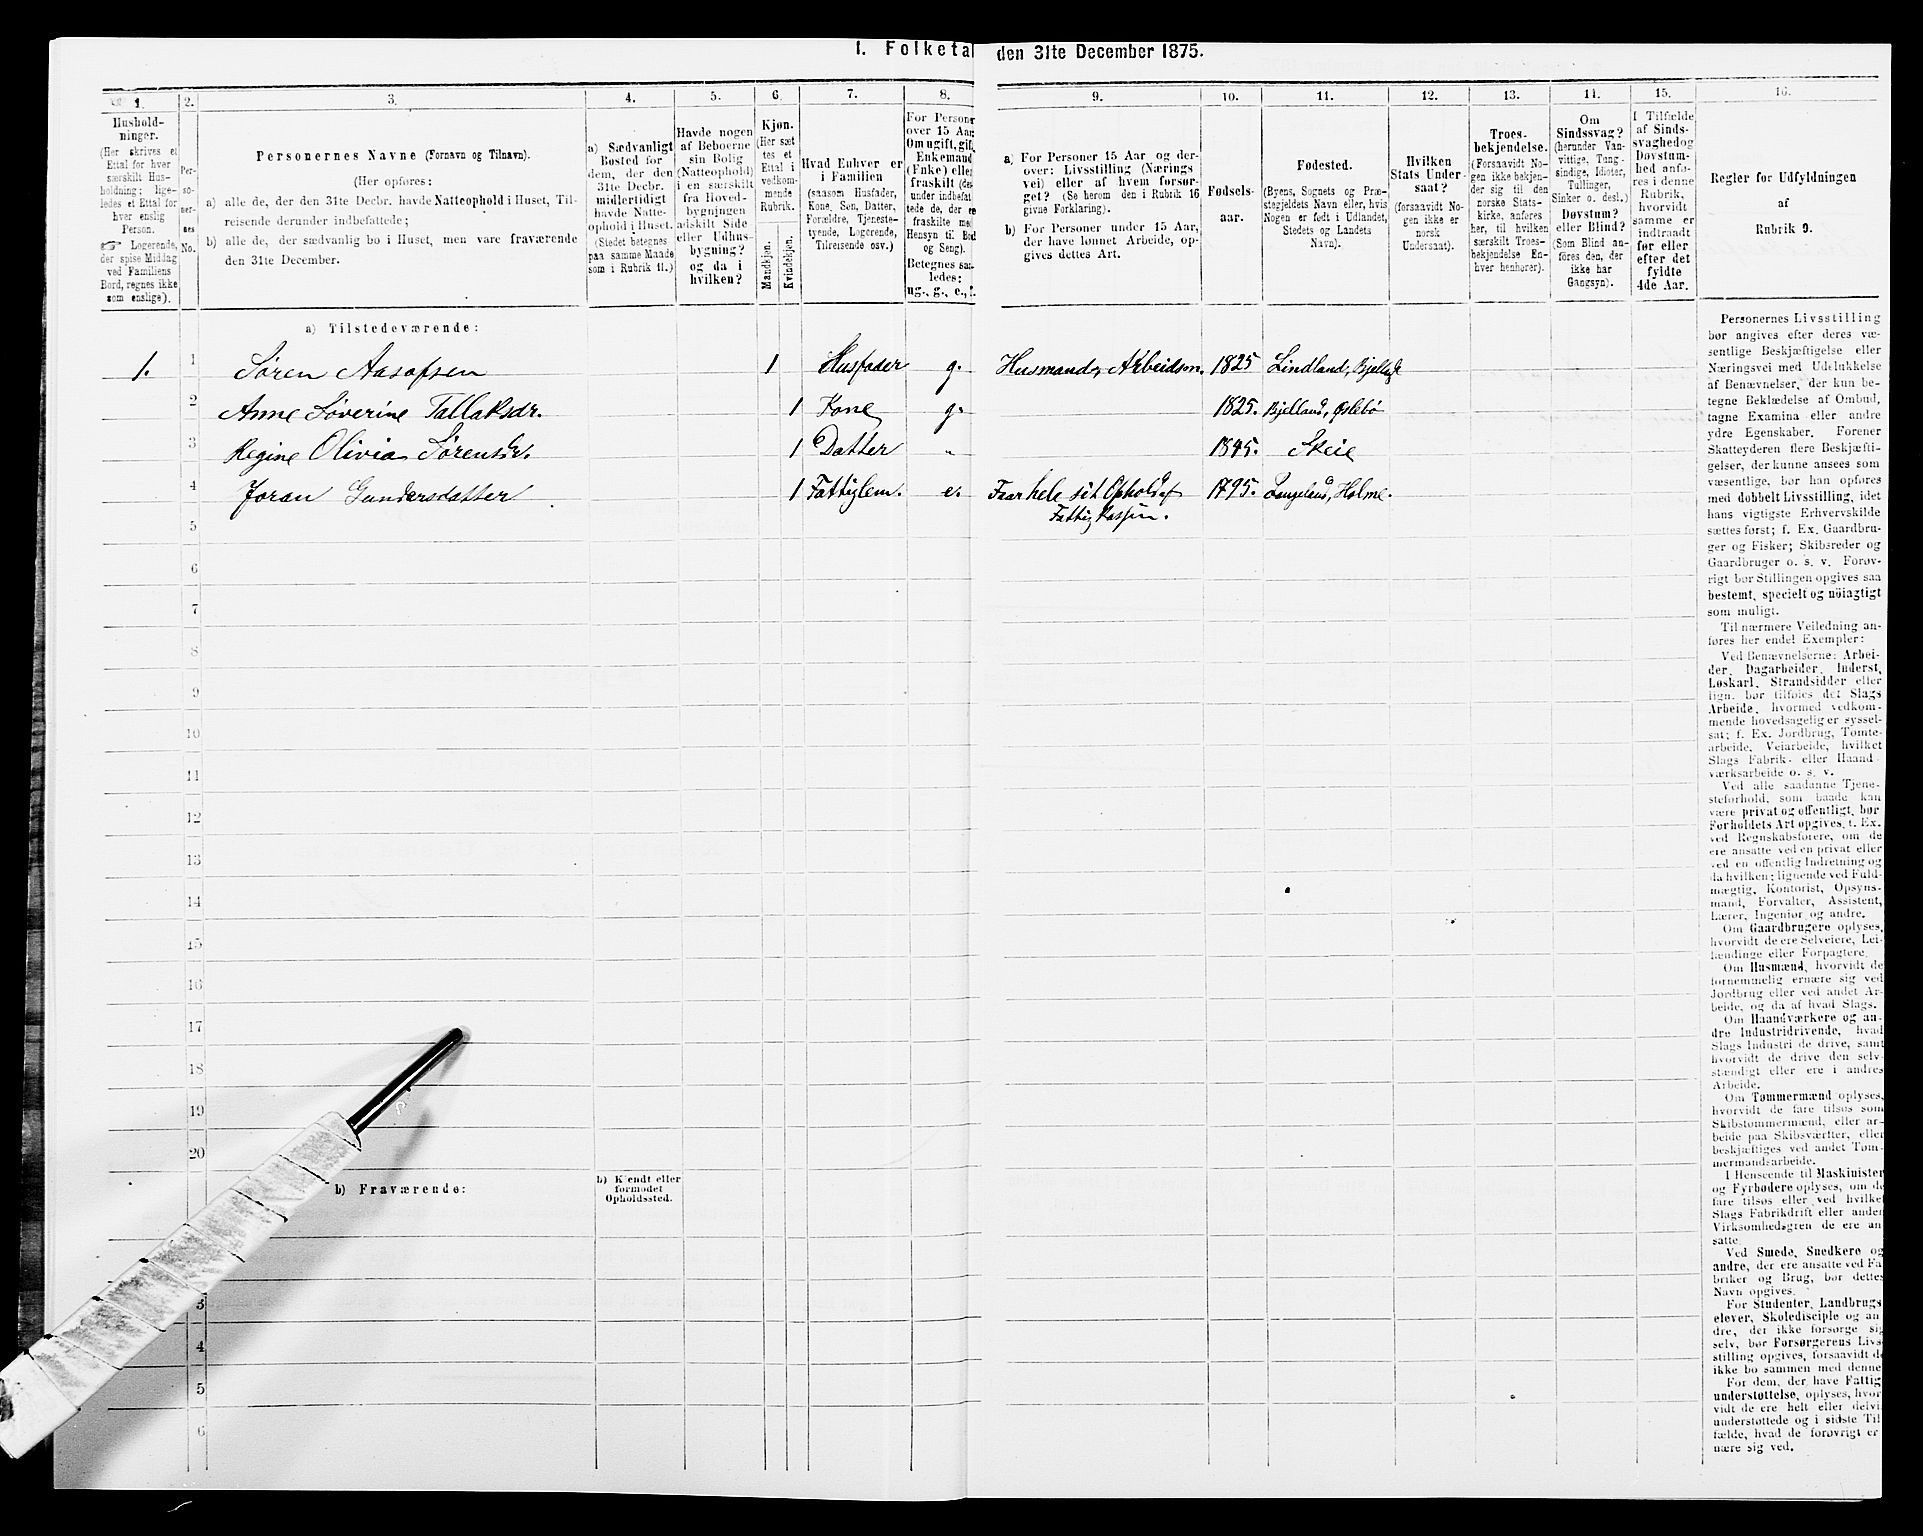 1. Folketa den 31te December 1875.
1.
2.
3.
4.
5.
6.
7.
8.
9.
10.
11.
12.
13.
14.
15.
16.
Hushold-
ninger.
(Her skrives et
Ettal for hver
særskilt Hus-
holdning; lige-
ledes et Ettal for
hver enslig
Person.
☞ Logerende,
der spise Middag
ved Familiens
Bord, regnes ikke
som enslige).
Per-
so-
ner-
nes
No.
Personernes Navne (Fornavn og Tilnavn).
(Her opføres:
a) alle de, der den 31te Decbr. havde Natteophold i Huset, Til-
reisende derunder indbefattede;
b) alle de, der sædvanlig bo i Huset, men vare fraværende
den 31te December.
a) Sædvanligt
Bosted for
dem, der den
31te Decbr.
midlertidigt
havde Natte-
ophold i Huset.
(Stedet betegnes
paa samme Maade
som i Rubrik 11.)
Havde nogen
af Beboerne
sin Bolig
(Natteophold)
i en særskilt
fra Hoved-
bygningen
adskilt Side
eller Udhus-
bygning?
og da i
hvilken?
Kjøn.
(Her sæt
tes et
Ettal i
vedkom-
mende
Rubrik.
Mandkjøn.
Kvindekjøn.
Hvad Enhver er
i Familien
(saasom Husfader,
Kone, Søn, Datter,
Forældre, Tjeneste-
tyende, Logerende,
Tilreisende osv.)
For Persone
over 15 Aar
Om ugift, gif
Enkemand
(Enke) elle
fraskilt (de
under indbefat
tede de, der e
fraskilte me
Hensyn til Bo
og Seng).
Betegnes saa
ledes:
ug., g., e., f.
a) For Personer 15 Aar og der-
over: Livsstilling (Nærings
vei) eller af hvem forsør-
get? (Se herom den i Rubrik 16
givne Forklaring).
b) For Personer under 15 Aar,
der have lønnet Arbeide, op-
gives dettes Art.
Fødsels-
aar.
Fødested.
(Byens, Sognets og Præ-
stegjeldets Navn eller, hvis
Nogen er født i Udlandet,
Stedets og Landets
Navn).
Hvilken
Stats Under-
saat?
(forsaavidt No-
gen ikke er
norsk
Undersaat).
Troes-
bekjendelse.
(Forsaavidt No-
gen ikke bekjen-
der sig til den
norske Stats-
kirke, anføres
her, til hvilken
særskilt Troes-
bekjendelse En-
hver henhører).
Om
Sindssvag?
(herunder Van-
vittige, Tung-
sindige, Idioter,
Tullinger,
Sinker o. desl.)
Døvstum?
eller Blind?
(Som Blind an-
føres den, der
ikke har
Gangsyn).
I Tilfælde
af Sinds-
svaghed og
Døvstum-
hed anfø-
res i denne
Rubrik,
hvorvidt
samme er
indtraadt
før eller
efter det
fyldte
4de Aar.
Regler for Udfyldningen
af
Rubrik 9.
a) Tilstedeværende:
1. 1 Søren Aasofsen 1 Husfader g. Husmand, Arbeidsm. 1825 Lindland, Bjelland
2 Anne Søverine Tallaksdr. 1 Kone g. 1825. Bjelland, Øslebø
3 Regine Olivia Sørensdr. 1 Datter „ 1845. Skeie
4 Joran Gundersdatter 1 Fattiglem. e. Faar hele sit Ophold af 1795. Langeland, Holme.
5 Fattigkassen.
6
7
8
9
10
11
12
13
14
15
16
17
18
19
20
b) Fraværende:
b) Kjendt eller
formodet
Opholdssted.
3
4
5
6
Personernes Livsstilling
bør angives efter deres væ-
sentlige Beskjæftigelse eller
Næringsvei med Udelukkelse
af Benævnelser, der kun be-
tegne Beklædelse af Ombud,
tagne Examina eller andre
ydre Egenskaber. Forener
Skatteyderen flere Beskjæfti-
gelser, der kunne ansees som
væsentlige, bør han opføres
med dobbelt Livsstilling, idet
hans vigtigste Erhvervskilde
sættes først; f. Ex. Gaardbru-
ger og Fisker; Skibsreder og
Gaardbruger o. s. v. Forøv-
rigt bør Stillingen opgives saa
bestemt, specielt og nøiagtigt
som muligt.
Til nærmere Veiledning an-
føres her endel Exempler:
Ved Benævnelserne: Arbei-
der, Dagarbeider, Inderst,
Løskarl, Strandsidder eller
lign. bør tilføies det Slags
Arbeide, hvormed vedkom-
mende hovedsagelig er syssel-
sat; f. Ex. Jordbrug, Tomte-
arbeide, Veiarbeide, hvilket
Slags Fabrik- eller Haand-
værksarbeide o. s. v.
Ved alle saadanne Tjene-
steforhold, som baade kan
være privat og offentligt, bør
Forholdets Art opgives, f. Ex.
ved Regnskabsførere, om de
ere ansatte ved en privat eller
ved en offentlig Indretning og
da hvilken; lignende ved Fuld-
mægtig, Kontorist, Opsyns-
mand, Forvalter, Assistent,
Lærer, Ingeniør og andre.
Om Gaardbrugere oplyses,
hvorvidt de ere Selveiere, Lei-
lændinge eller Forpagtere.
Om Husmænd, hvorvidt de
fornemmelig ernære sig ved
Jordbrug eller ved andet Ar-
beide, og da af hvad Slags.
Om Haandværkere og an-
dre Industridrivende, hvad
Slags Industri de drive, samt
hvorvidt de drive den selv-
stændigt eller ere i andres
Arbeide.
Om Tømmermænd oplyses,
hvorvidt de fare tilsøs som
Skibstømmermænd, eller ar-
beide paa Skibsværfter, eller
beskjæftiges ved andet Tøm-
mermandsarbeide.
I Henseende til Maskinister
og Fyrbødere oplyses, om de
fare tilsøs eller ved hvilket
Slags Fabrikdrift eller anden
Virksomhedsgren de ere an
satte.
Ved Smede, Snedkere og
andre, der ere ansatte ved Fa
briker og Brug, bør dettes
Navn opgives.
For Studenter, Landbrugs
elever, Skoledisciple og an
dre, der ikke forsørge sig
selv, bør Forsørgerens Livs
stilling opgives, forsaavidt de
ikke bo sammen med denne.
For dem, der have Fattig
understøttelse, oplyses, hvor
vidt de ere helt eller delvi.
understøttede og i sidste Til
fælde, hvad de forøvrigt er
nære sig ved.